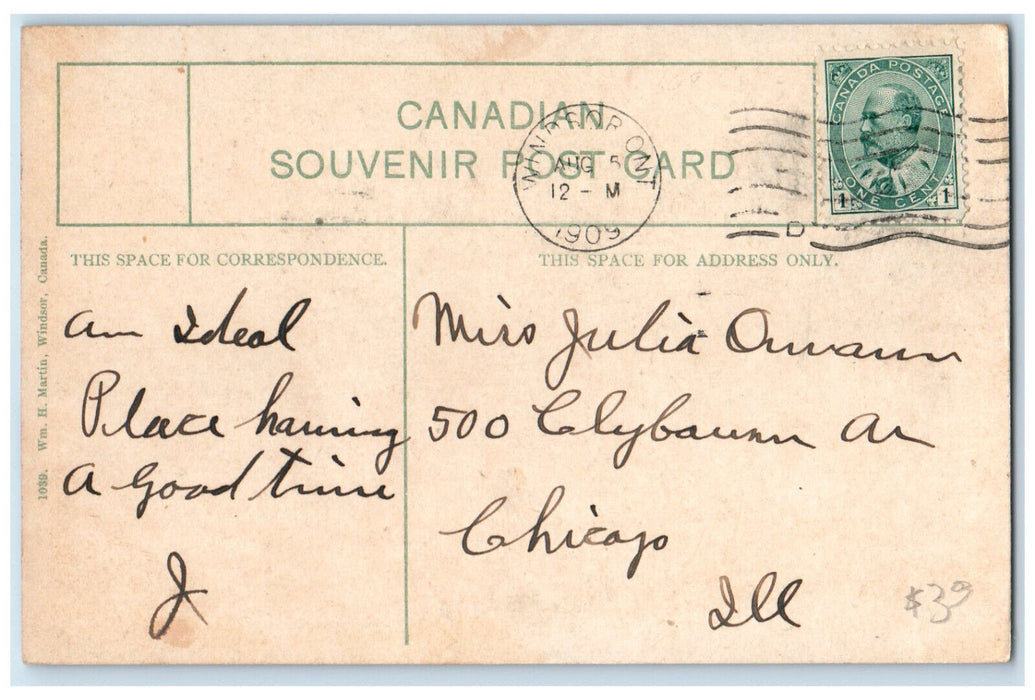 CANADIAN
SOUVENIR POST CARD
WINDSOR, ONT
AUG 5
12 - M
1909
D
CANADA POSTAGE
1 ONE CENT 1
THIS SPACE FOR CORRESPONDENCE.
THIS SPACE FOR ADDRESS ONLY.
1039. Wm. H. Martin, Windsor, Canada.
An Ideal
Place having
A good time
J
Miss Julia
500 Clybourn Av
Chicago
Ill
$3